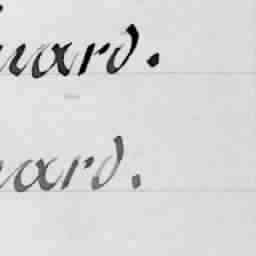 uard.
uard.